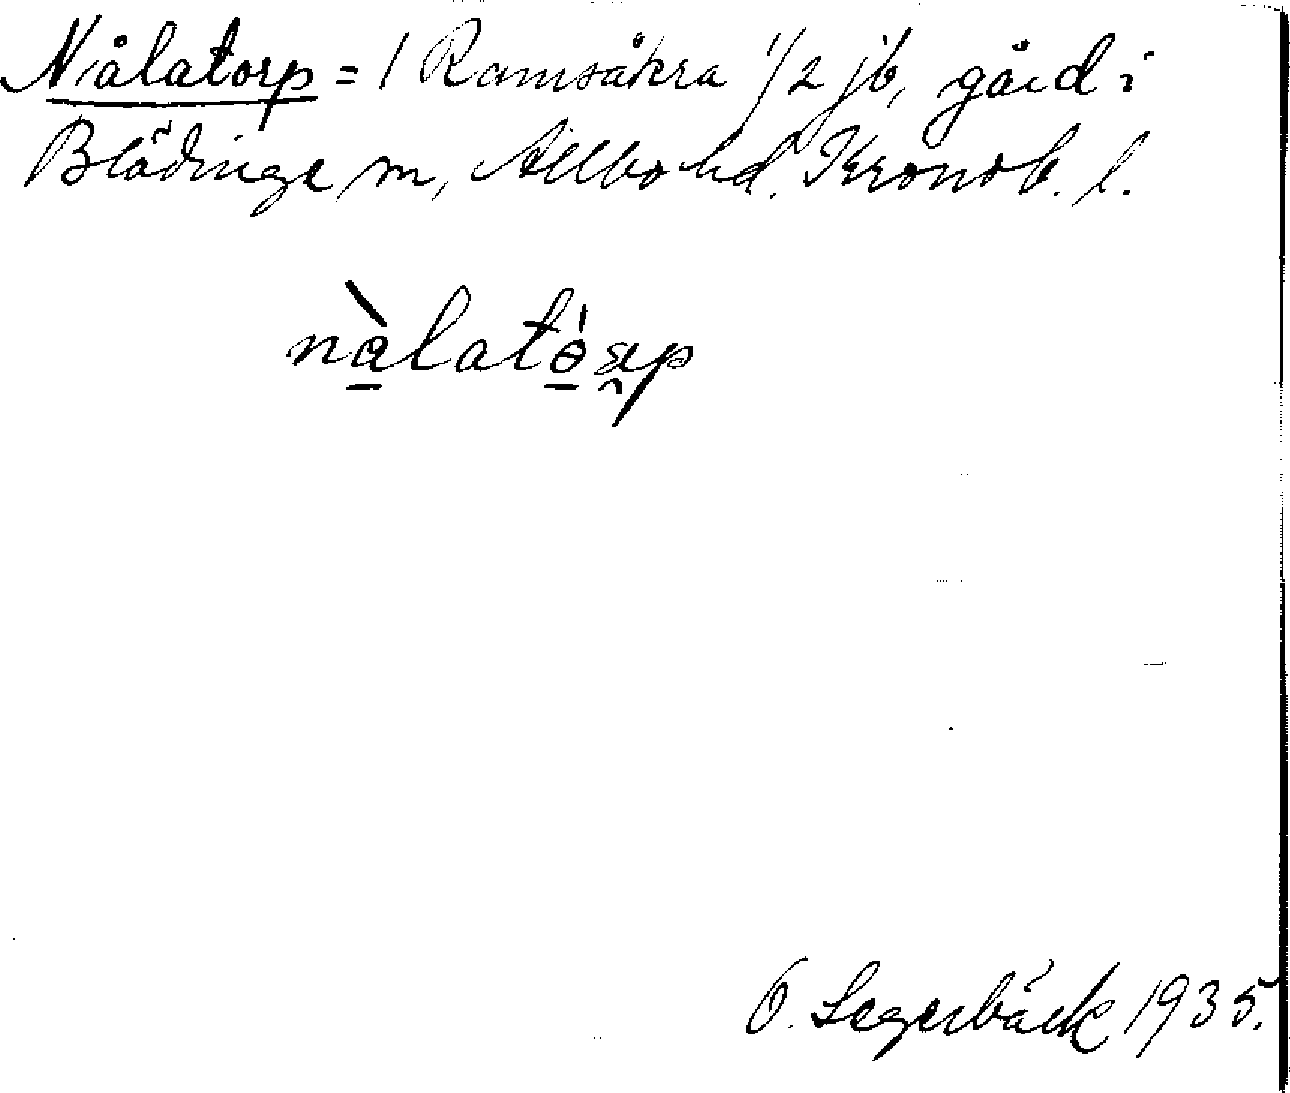 Nålatorp = 1 Ramsåkra 1/2 jb, gård i
Blädinge sn, Allbo hd. Kronob. l.
nàlatórp
O. Segerbäck 1935.